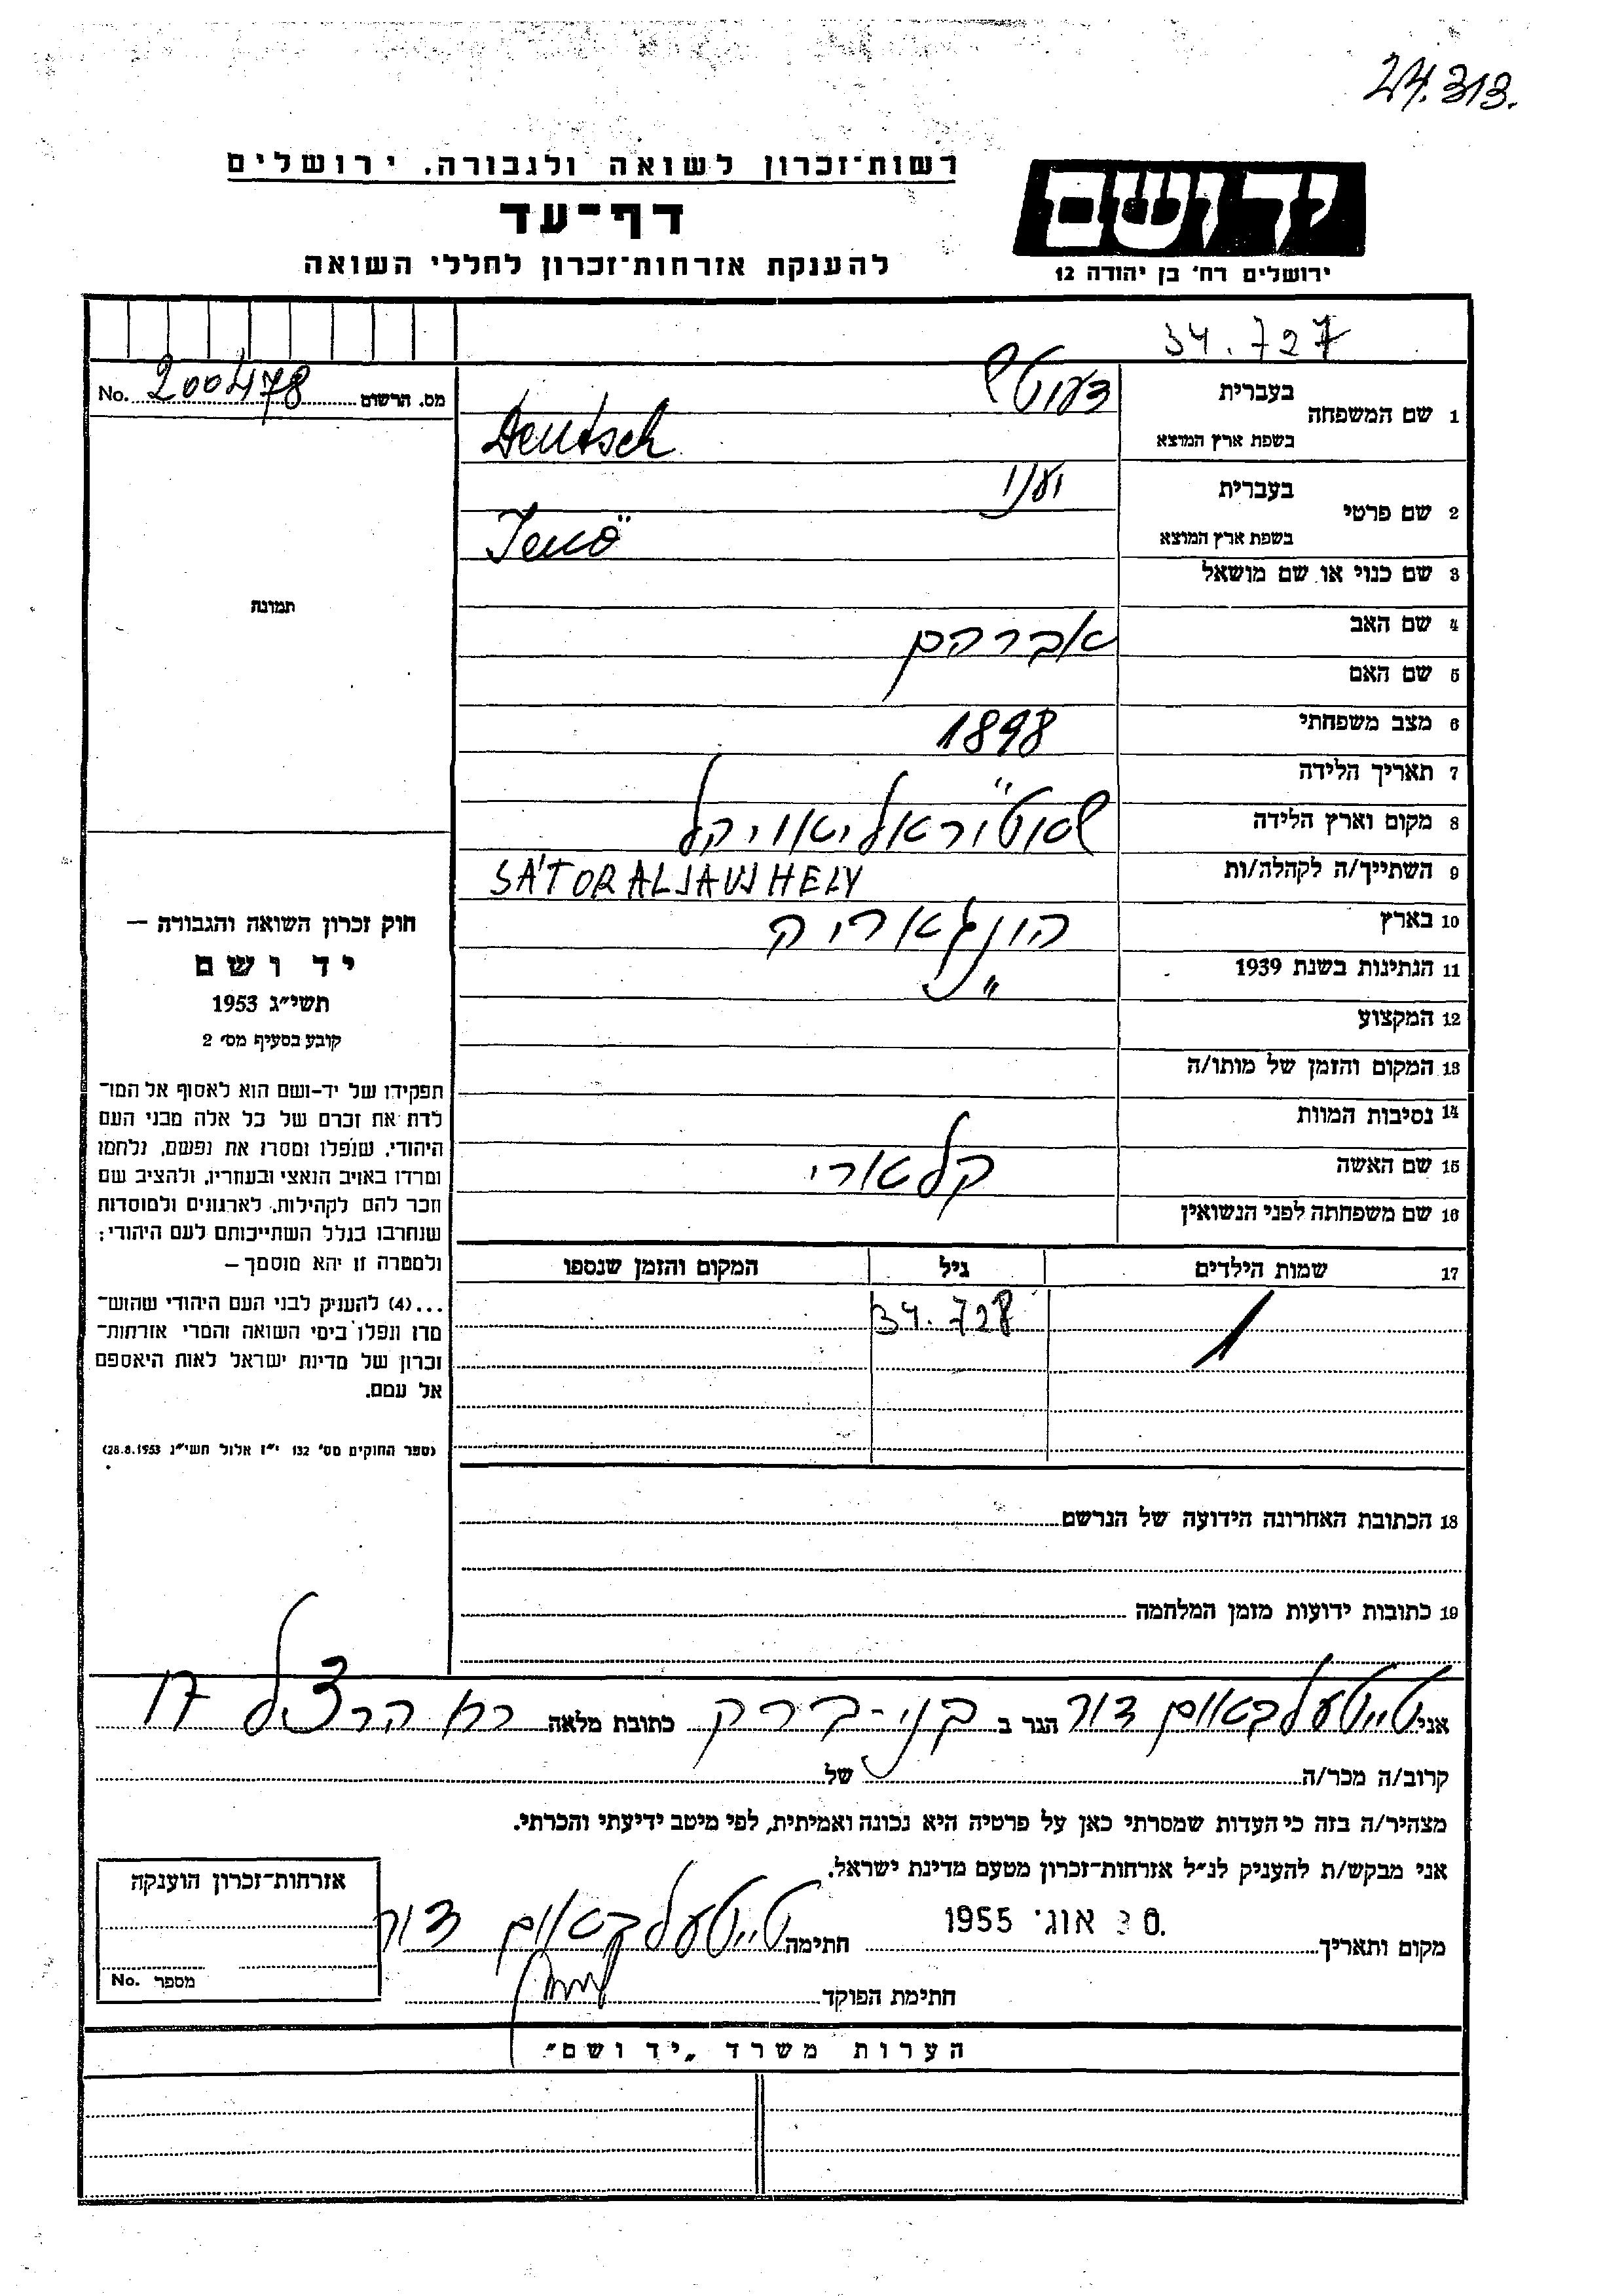 24.313.
רשות־זכרון לשואה ולגבורה. ירושלים
דף־עד
להענקת אזרחות־זכרון לחללי השואה
יד ושם
ירושלים רח׳ בן יהודה 12
34.727
מס. הרשום 200478 No.
1 שם המשפחה בעברית דעוטש
בשפת ארץ המוצא Deutsch
2 שם פרטי בעברית יענו
בשפת ארץ המוצא Jenö
3 שם כנוי או שם מושאל
4 שם האב אברהם
5 שם האם
6 מצב משפחתי 1898
7 תאריך הלידה
8 מקום וארץ הלידה
9 השתייך/ה לקהלה/ות SÁTORALJAUJHELY
10 בארץ הונגאריה
11 הנתינות בשנת 1939 "
12 המקצוע
13 המקום והזמן של מותו/ה
14 נסיבות המוות
15 שם האשה קלארי
16 שם משפחתה לפני הנשואין
17 שמות הילדים גיל המקום והזמן שנספו
34.728
18 הכתובת האחרונה הידועה של הנרשם
19 כתובות ידועות מזמן המלחמה
תמונה
חוק זכרון השואה והגבורה —
יד ושם
תשי״ג 1953
קובע בסעיף מס׳ 2
תפקידו של יד-ושם הוא לאסוף אל המו־
לדת את זכרם של כל אלה מבני העם
היהודי, שנפלו ומסרו את נפשם, נלחמו
ומרדו באויב הנאצי ובעוזריו, ולהציב שם
וזכר להם לקהילות, לארגונים ולמוסדות
שנחרבו בגלל השתייכותם לעם היהודי;
ולמטרה זו יהא מוסמך —
...(4) להעניק לבני העם היהודי שהוש־
מדו ונפלו בימי השואה והמרי אזרחות־
זכרון של מדינת ישראל לאות היאספם
אל עמם.
(ספר החוקים מס׳ 132 י״ז אלול תשי״ג 28.8.1953)
אני טייטעלבאום דוד הגר ב בני-ברק כתובת מלאה רח הרצל 17
קרוב/ה מכר/ה של
מצהיר/ה בזה כי העדות שמסרתי כאן על פרטיה היא נכונה ואמיתית, לפי מיטב ידיעתי והכרתי.
אני מבקש/ת להעניק לנ״ל אזרחות־זכרון מטעם מדינת ישראל.
מקום ותאריך 30. אוג׳ 1955 חתימה טייטעלבאום דוד
חתימת הפוקד
אזרחות־זכרון הוענקה
מספר No.
הערות משרד „יד ושם״